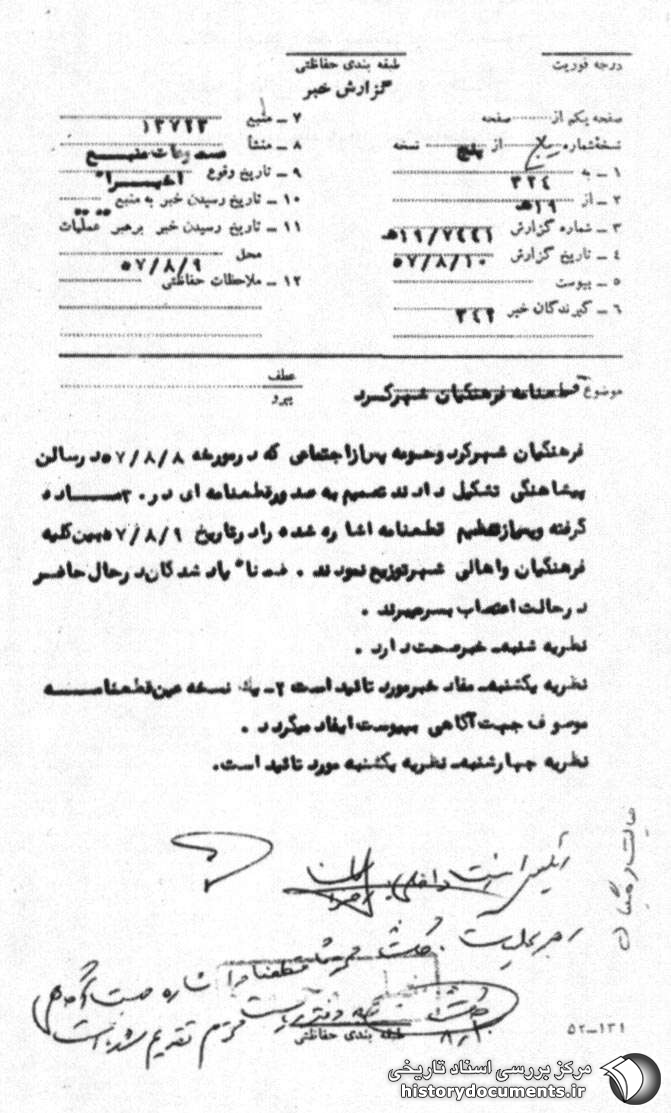 درجه فوریت
طبقه بندی حفاظتی
گزارش خبر
صفحه یکم از صفحه
نسخه شماره از پنج نسخه
۱ ـ به ۳۲۴
۲ ـ از ۱۹ه
۳ ـ شماره گزارش ۱۹/۷۴۴۱ه
۴ ـ تاریخ گزارش ۵۷/۸/۱۰
۵ ـ پیوست
۶ ـ گیرندگان خبر ۳۴۲
۷ ـ منبع ۱۳۷۲۳
۸ ـ منشأ مسموعات منبع
۹ ـ تاریخ وقوع اخیراً
۱۰ ـ تاریخ رسیدن خبر به منبع
۱۱ ـ تاریخ رسیدن خبر برهبر عملیات
محل ۵۷/۸/۹
۱۲ ـ ملاحظات حفاظتی
موضوع قطعنامه فرهنگیان شهرکرد
عطف
پیرو
فرهنگیان شهرکرد وحومه پس از اجتماعی که در مورخه ۵۷/۸/۸ در سالن
پیشاهنگی تشکیل دادند تصمیم به صدور قطعنامه ای در ۳۰ ماده
گرفته وپس از تنظیم قطعنامه اشاره شده را در تاریخ ۵۷/۸/۹ بین کلیه
فرهنگیان واهالی شهر توزیع نمودند . ضمناً یاد شدگان در حال حاضر
در حالت اعتصاب بسر میبرند .
نظریه شنبه ـ خبر صحت دارد .
نظریه یکشنبه ـ مفاد خبر مورد تائید است ۲ ـ یک نسخه عین قطعنامه
موصوف جهت آگاهی بپیوست ایفاد میگردد .
نظریه چهارشنبه ـ نظریه یکشنبه مورد تائید است.
طبقه بندی حفاظتی
۵۲-۱۳۱
مرکز بررسی اسناد تاریخی
historydocuments.ir